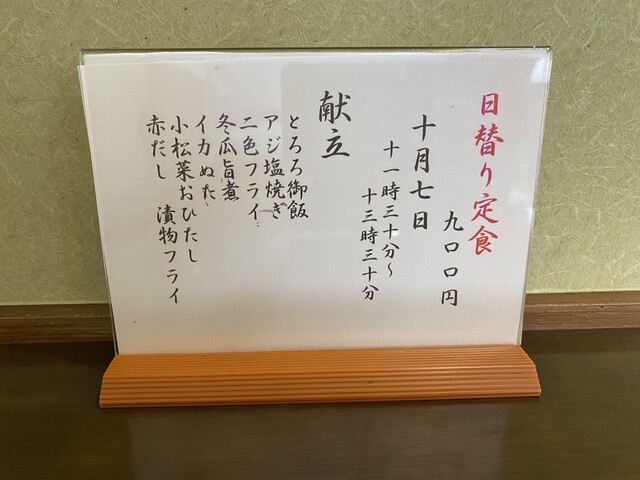 日替り定食
九〇〇円
十月七日
十一時三十分～
十三時三十分
献立
とろろ御飯
アジ塩焼ぎ
二色フライ
冬瓜旨煮
イカぬた
小松菜おひたし
赤だし　漬物フライ